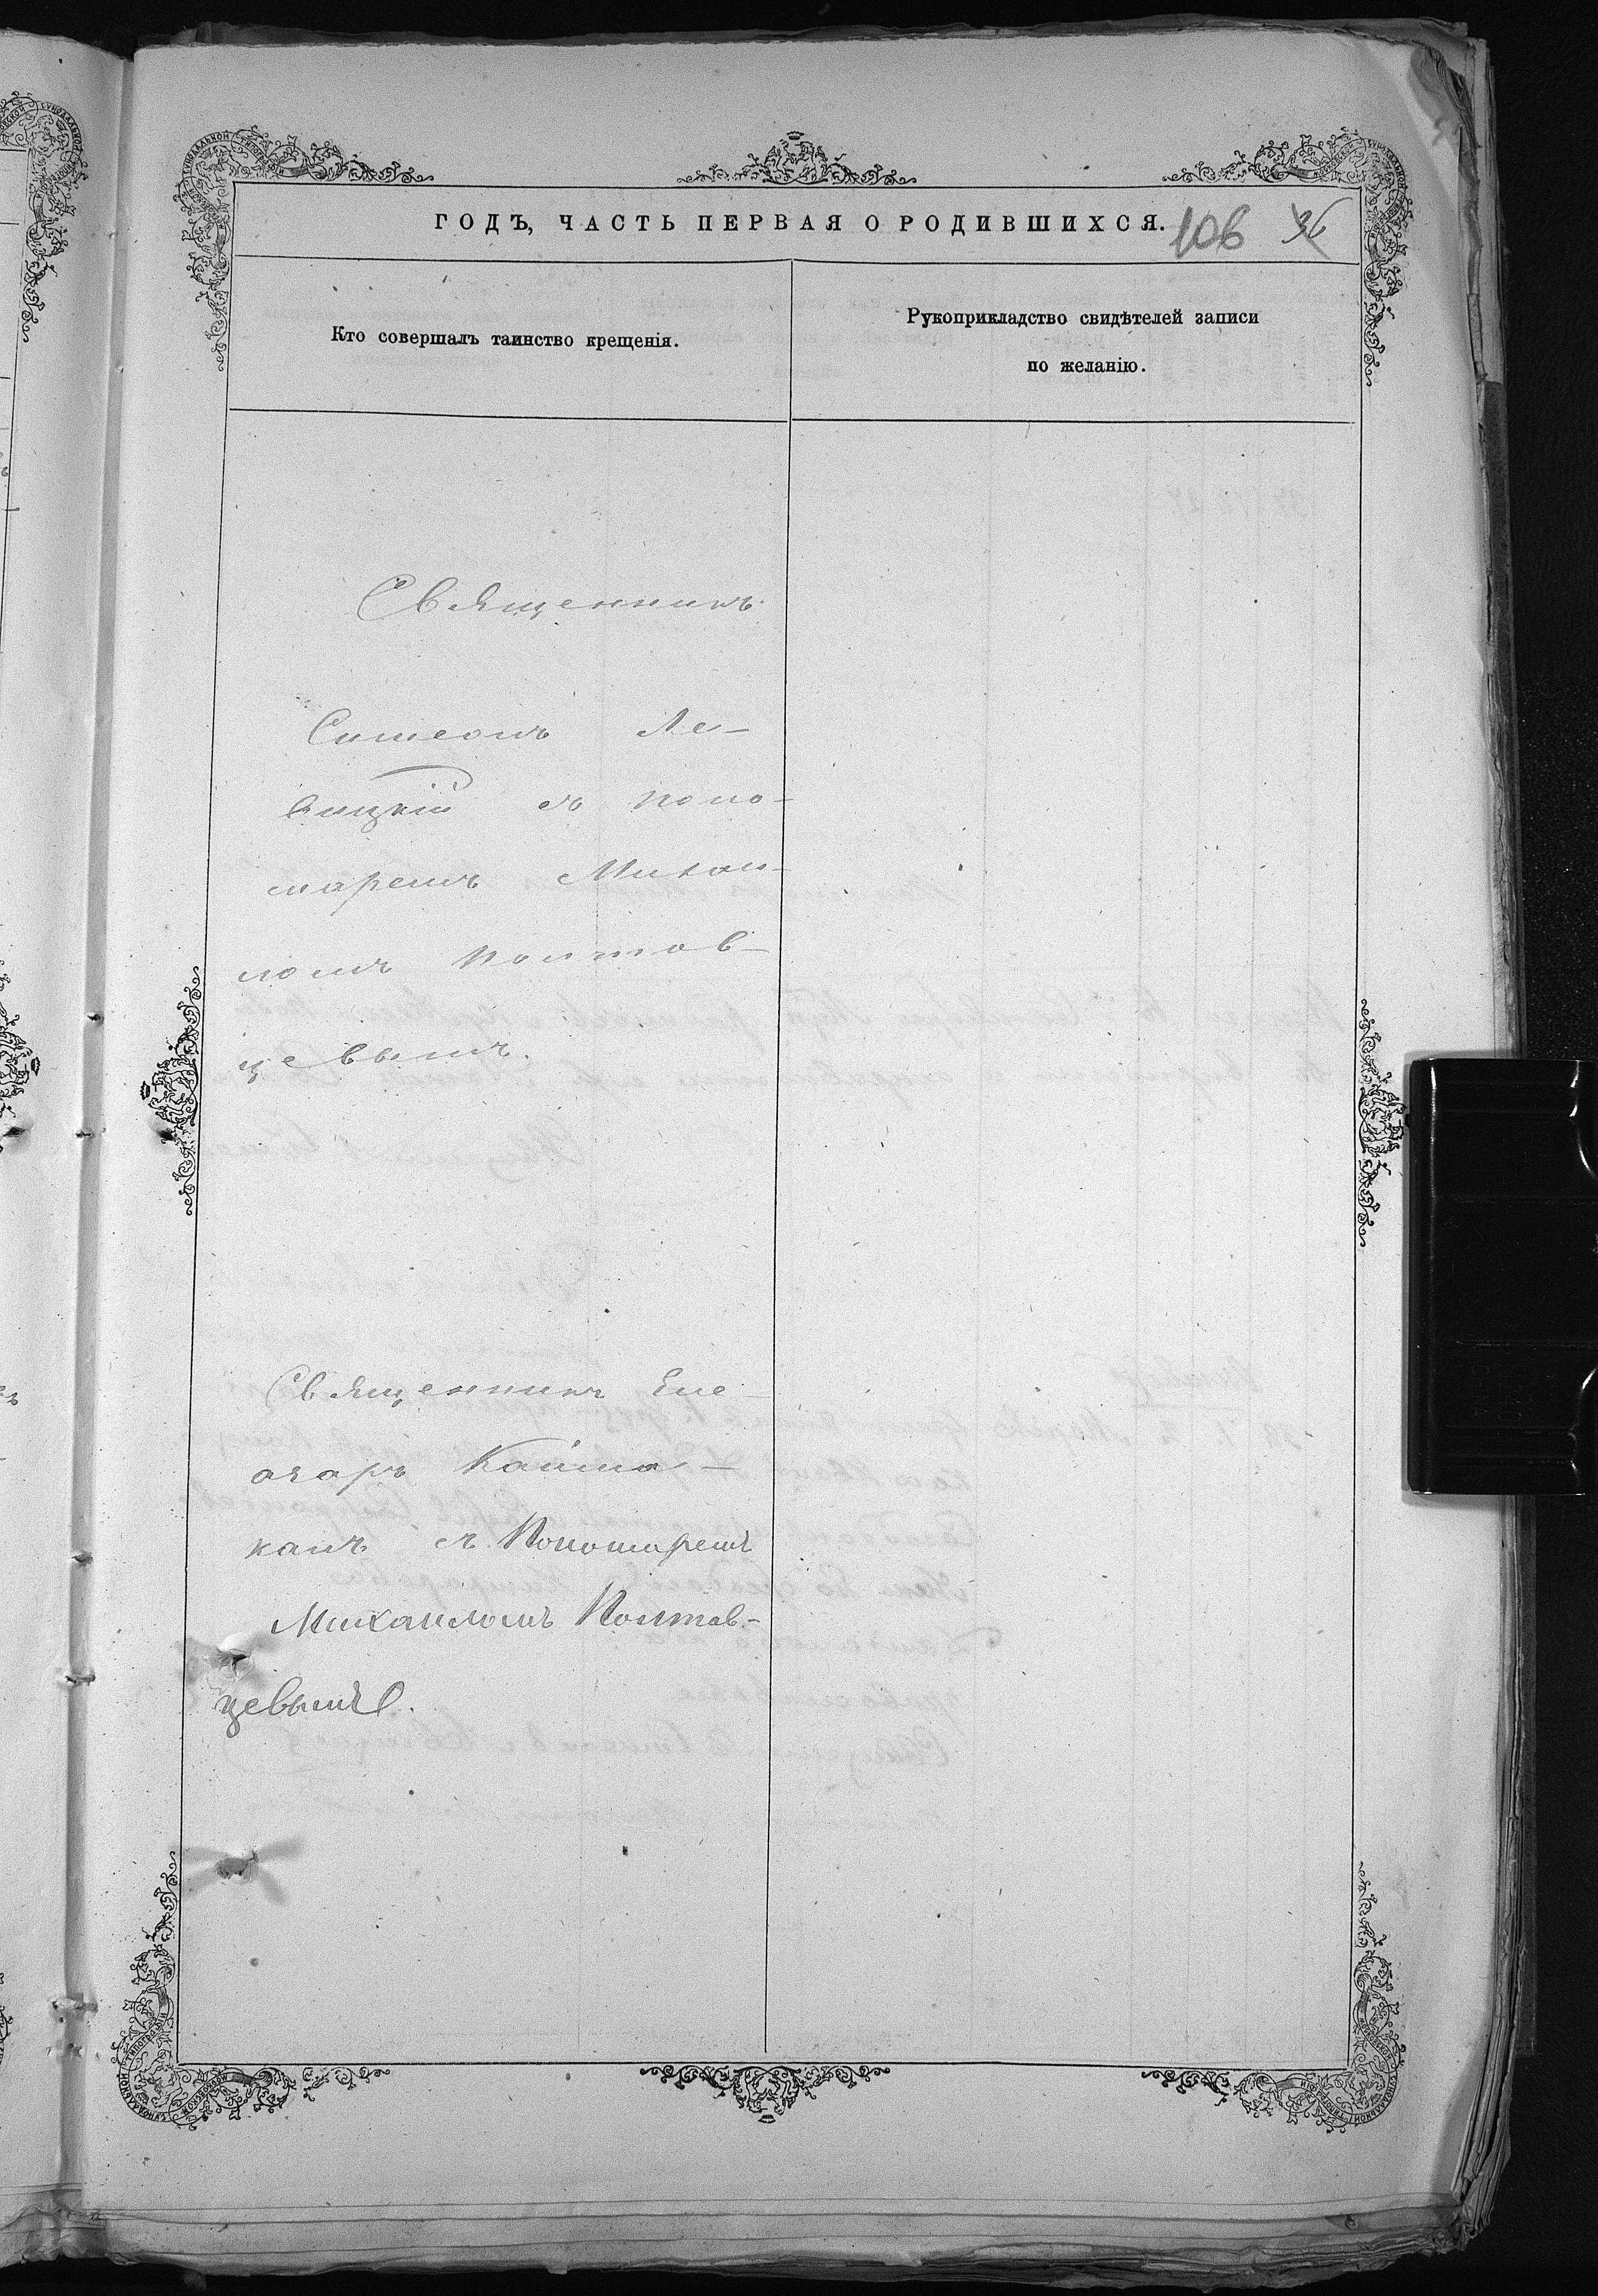 ГОДЪ, ЧАСТЬ ПЕРВАЯ О РОДИВШИХСЯ. 106 36
Кто совершалъ таинство крещенія.
Рукоприкладство свидѣтелей записи
по желанію.
Священникъ
Симеонъ Ле-
вицкій съ поно-
маремъ Михаи-
ломъ Полтав-
цевымъ.
Священникъ Еле-
азаръ Кайма-
канъ съ Пономаремъ
Михаиломъ Полтав-
цевымъ.